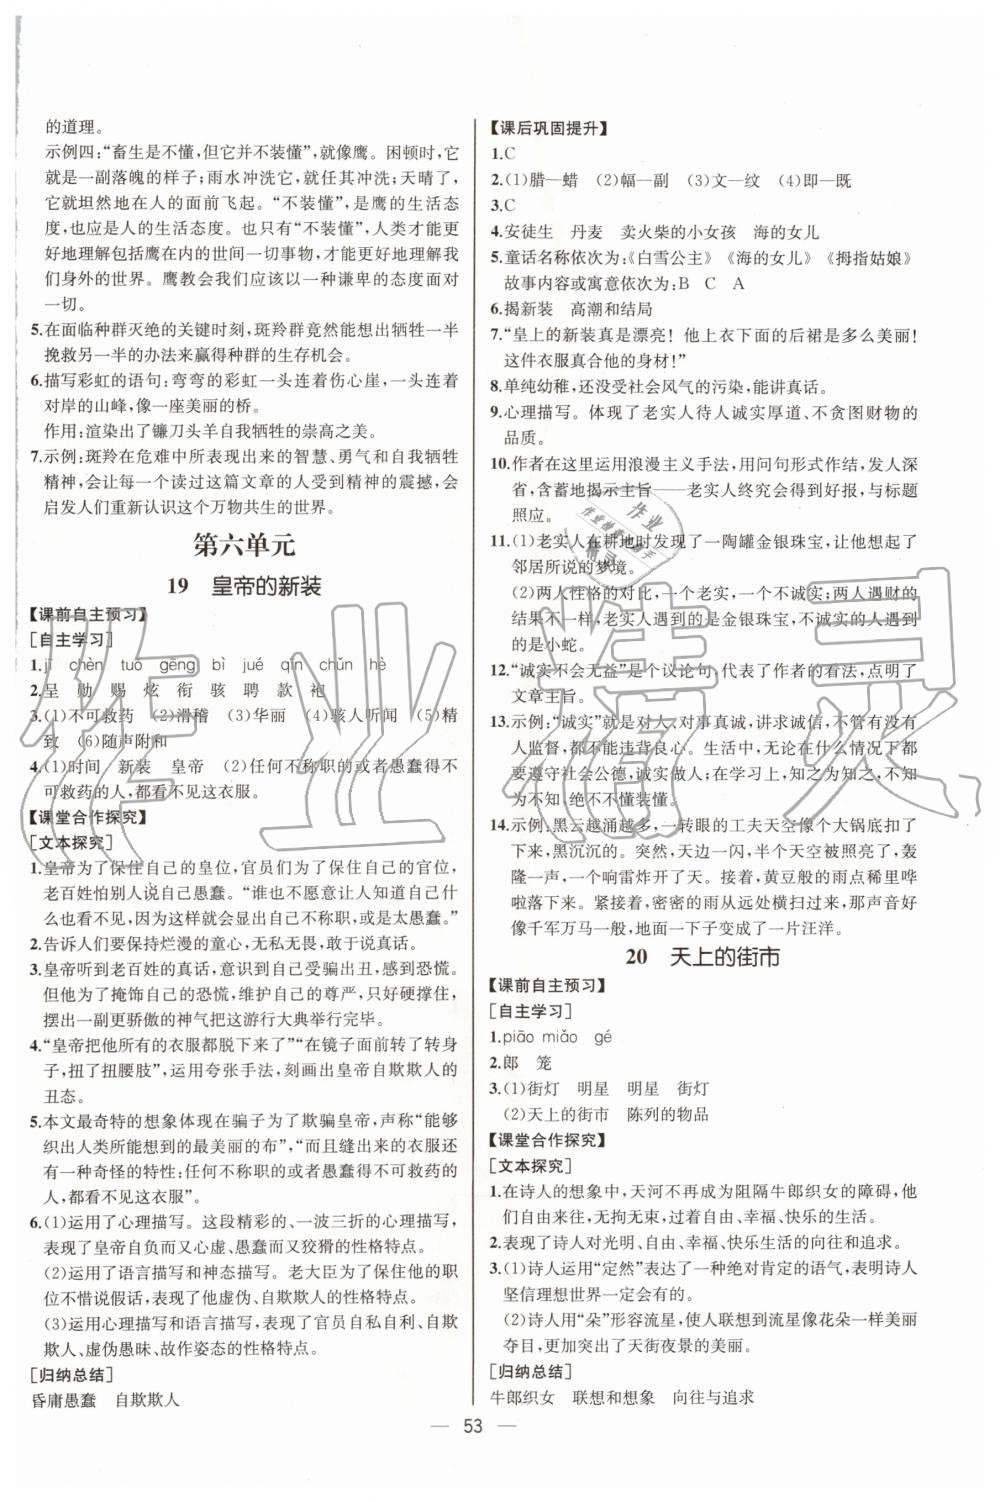 的道理。
示例四：“畜生是不懂，但它并不装懂”，就像鹰。困顿时，它
就是一副落魄的样子；雨水冲洗它，任其冲洗；天晴了，
它就坦然地在人的面前飞起。“不装懂”，是鹰的生活态
度，也应是人的生活态度。也只有“不装懂”，人类才能更
好地理解包括鹰在内的世间一切事物，才能更好地理解我
们自身外的世界。鹰教会我们应该以一种谦卑的态度面对
一切。
5.在面临种群灭绝的关键时刻，斑羚群竟然能想出牺牲一半
挽救另一半的办法来赢得种群的生存机会。
6.描写彩虹的语句：弯弯的彩虹一头连着伤心崖，一头连着
对岸的山峰，像一座美丽的桥。
作用：渲染出了镰刀头羊自我牺牲的崇高之美。
7.示例：斑羚在危难中所表现出来的智慧、勇气和自我牺牲
精神，会让每一个读过这篇文章的人受到精神的震撼，会
启发人们重新认识这个万物共生的世界。
第六单元
19 皇帝的新装
【课前自主预习】
[自主学习]
1.jī chèn tuǒ gēng bì jué qìn chǔn hè
2.呈 勋 赐 炫 衔 骇 聘 款 袍
3.(1)不可救药 (2)滑稽 (3)华丽 (4)骇人听闻 (5)精
致 (6)随声附和
4.(1)时间 新装 皇帝 (2)任何不称职的或者愚蠢得不
可救药的人，都看不见这衣服。
【课堂合作探究】
[文本探究]
1.皇帝为了保住自己的皇位，官员们为了保住自己的官位，
老百姓怕别人说自己愚蠢。“谁也不愿意让人知道自己什
么也看不见，因为这样就会显出自己不称职，或是太愚蠢。”
2.告诉人们要保持烂漫的童心，无私无畏，敢于说真话。
3.皇帝听到老百姓的真话，谎言被揭穿而出丑，感到恐慌。
但他为了掩饰自己的恐慌，维护自己的尊严，只好硬撑住，
摆出一副更骄傲的神气把这游行大典举行完毕。
4.“皇帝把他所有的衣服都脱下来了”“在镜子面前转了转身
子，扭了扭腰肢”，运用夸张手法，刻画出皇帝自欺欺人的
丑态。
5.本文最奇特的想象体现在骗子为了欺骗皇帝，声称“能够
织出人类所能想到的最美丽的布”，“而且缝出来的衣服还
有一种奇怪的特性：任何不称职的或者愚蠢得不可救药的
人，都看不见这衣服”。
6.(1)运用了心理描写。这段精彩的、一波三折的心理描写，
表现了皇帝自负而又心虚、愚蠢而又狡猾的性格特点。
(2)运用了语言描写和神态描写。老大臣为了保住他的职
位不惜说假话，表现了他虚伪、自欺欺人的性格特点。
(3)运用了心理描写和语言描写，表现了官员自私自利、自欺
欺人、虚伪愚昧、故作姿态的性格特点。
[归纳总结]
昏庸愚蠢 自欺欺人
【课后巩固提升】
1.C
2.(1)腊—蜡 (2)幅—副 (3)文—纹 (4)即—既
3.C
4.安徒生 丹麦 卖火柴的小女孩 海的女儿
5.童话名称依次为：《白雪公主》《海的女儿》《拇指姑娘》
故事内容或寓意依次为：B C A
6.揭新装 高潮和结局
7.“皇上的新装真是漂亮！他上衣下面的后裙是多么美丽！
这件衣服真合他的身材！”
8.单纯幼稚，还没受社会风气的污染，能讲真话。
9.心理描写。体现了老实人待人诚实厚道、不贪图财物的
品质。
10.作者在这里运用浪漫主义手法，用问句形式作结，发人深
省，含蓄地揭示主旨——老实人终究会得到好报，与标题
照应。
11.(1)老实人在耕地时发现了一陶罐金银珠宝，正好对应了
邻居所说的梦境。
(2)两人性格的对比，一个老实，一个不诚实；两人遭遇的
结果不一样，老实人遇到的是金银珠宝，不诚实的人遇到
的是小蛇。
12.“诚实不会无益”是个议论句，代表了作者的看法，点明了
文章主旨。
13.示例：“诚实”就是对人、对事真诚，讲求诚信，不管有没有
人监督，都不能违背良心。生活中，无论在什么情况下都
要遵守社会公德，诚实做人；在学习上，知之为知之，不知
为不知，绝不不懂装懂。
14.示例：黑云越涌越多，一转眼的工夫天空像个大锅底扣了下
来，黑沉沉的。突然，天边一闪，半个天空被照亮了，轰
隆一声，一个响雷炸开了。接着，黄豆般的雨点稀里哗
啦落下来。紧接着，密密的雨点从远处横扫过来，那声音好
像千军万马一般，地面一下子变成了一片汪洋。
20 天上的街市
【课前自主预习】
[自主学习]
1.piāo miǎo gé
2.郎 笼
3.(1)街灯 明星 明星 街灯
(2)天上的街市 陈列的物品
【课堂合作探究】
[文本探究]
1.在诗人的想象中，天河不再成为阻隔牛郎织女的障碍，他
们自由来往，无拘无束，过着自由、幸福、快乐的生活。
2.表现了诗人对光明、自由、幸福、快乐生活的向往和追求。
3.(1)诗人运用“定然”表达了一种绝对肯定的语气，表明诗人
坚信理想世界一定会有的。
(2)诗人用“朵”形容流星，使人联想到流星像花朵一样美丽
夺目，更加突出了天街夜景的美丽。
[归纳总结]
牛郎织女 联想和想象 向往与追求
— 53 —